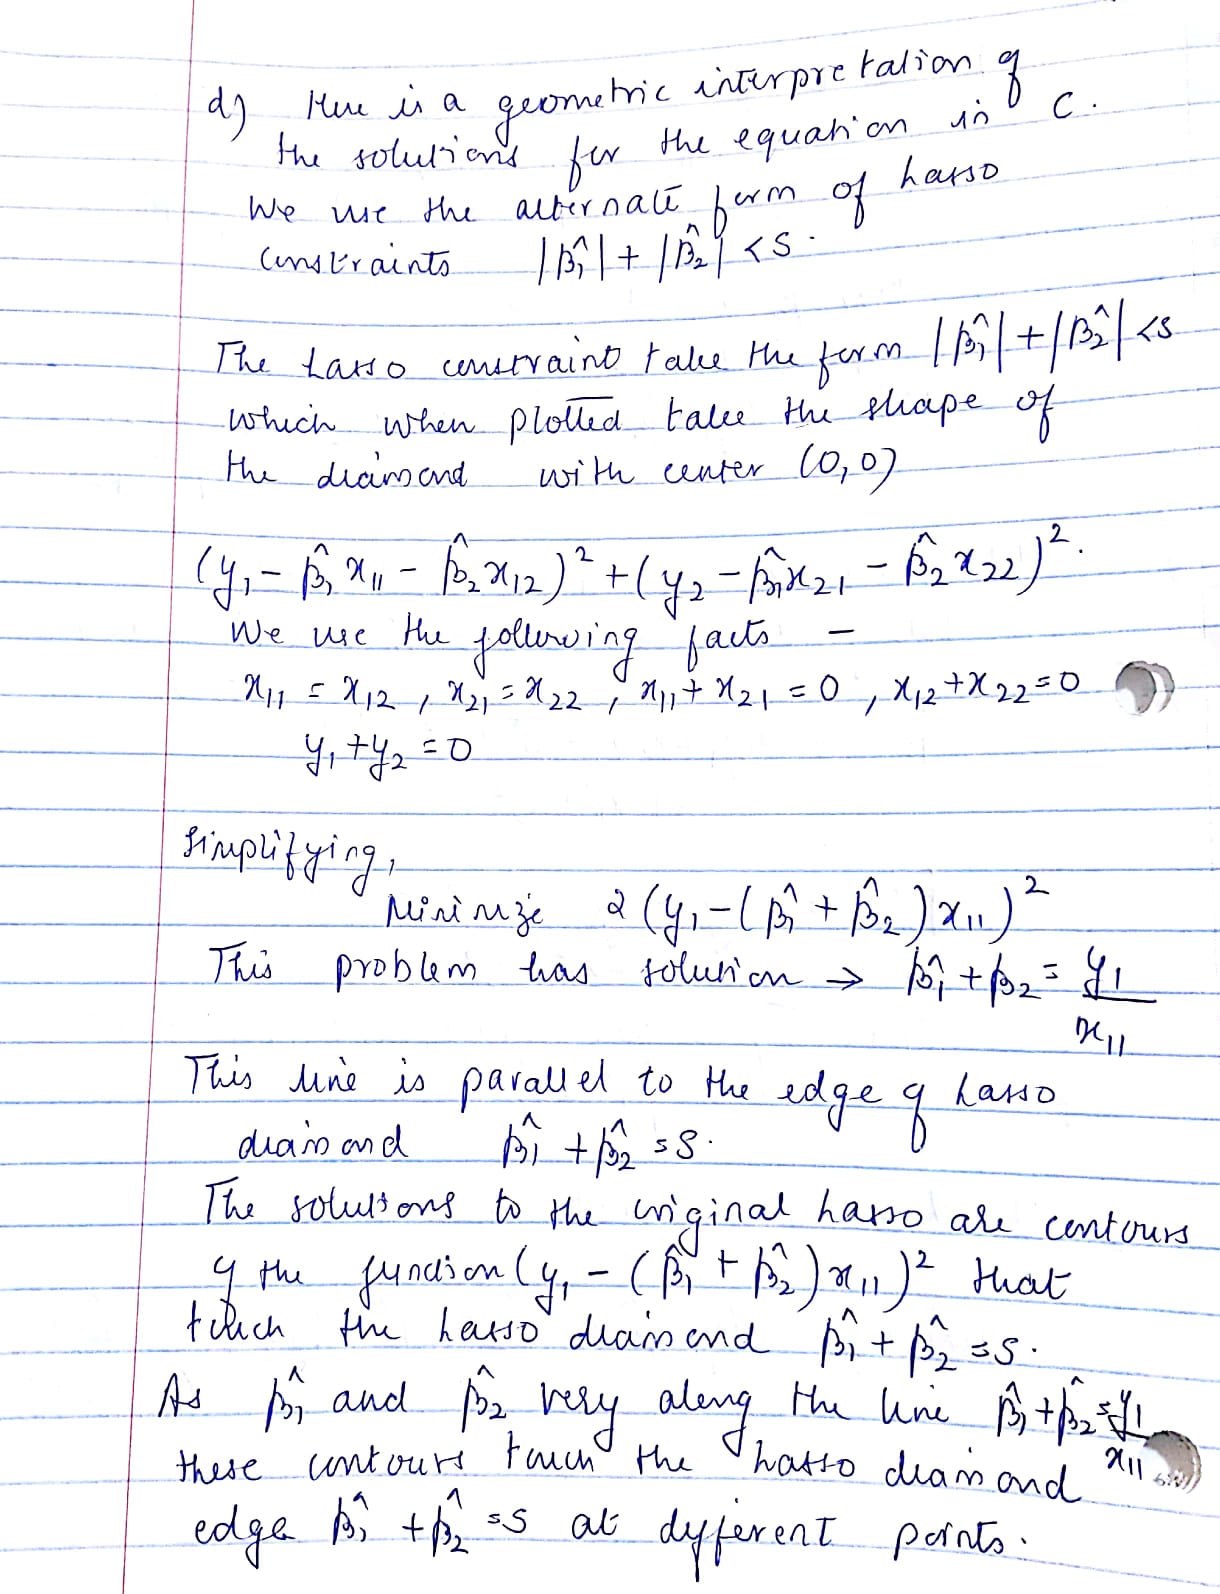 d) Here is a geometric interpretation of
the solutions for the equation in c.
We use the alternate form of Lasso
constraints |β̂₁| + |β̂₂| < s.
The Lasso constraint take the form |β̂₁| + |β̂₂| < s
which when plotted take the shape of
the diamond with center (0,0)
(y₁ - β̂₁x₁₁ - β̂₂x₁₂)² + (y₂ - β̂₁x₂₁ - β̂₂x₂₂)².
We use the following facts –
x₁₁ = x₁₂, x₂₁ = x₂₂, x₁₁ + x₂₁ = 0, x₁₂ + x₂₂ = 0
y₁ + y₂ = 0
Simplifying,
Minimize 2(y₁ - (β̂₁ + β̂₂)x₁₁)²
This problem has solution → β̂₁ + β₂ = y₁/x₁₁
This line is parallel to the edge of Lasso
diamond β̂₁ + β̂₂ = s.
The solutions to the original Lasso are contours
of the function (y₁ - (β̂₁ + β̂₂)x₁₁)² that
touch the Lasso diamond β̂₁ + β̂₂ = s.
As β̂₁ and β̂₂ very along the line β̂₁ + β̂₂ = y₁/x₁₁
these contours touch the Lasso diamond
edge β̂₁ + β̂₂ = s at different points.